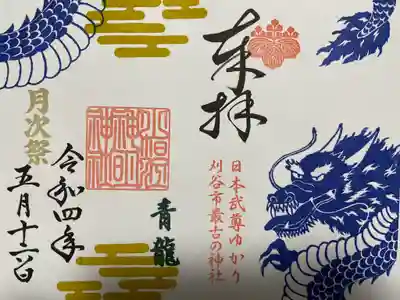 奉拝
日本武尊ゆかり
刈谷市最古の神社
青龍
小垣江
神明
神社
月次祭
令和四年
五月十二日